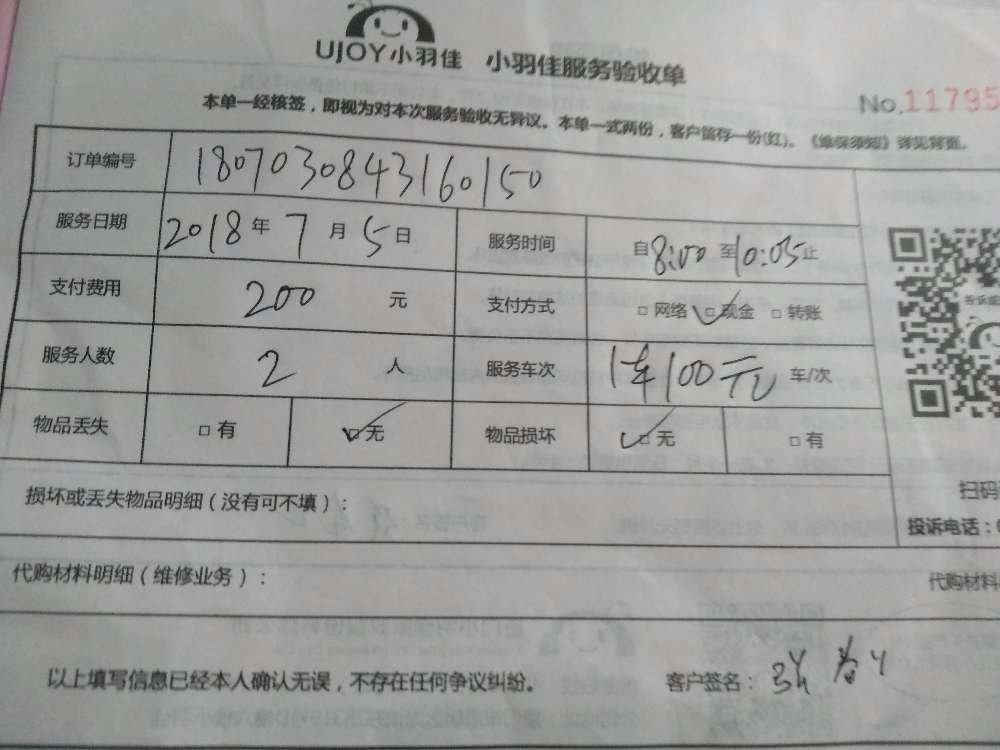 UJOY小羽佳 小羽佳服务验收单
No.11795
本单一经核签，即视为对本次服务验收无异议。本单一式两份，客户留存一份(红)。《维保须知》详见背面。
订单编号 1807030843160150
服务日期 2018年7月5日 服务时间 自8:00至10:05止
支付费用 200元 支付方式 □网络 ☑现金 □转账
服务人数 2人 服务车次 1车100元 车/次
物品丢失 □有 ☑无 物品损坏 ☑无 □有
损坏或丢失物品明细（没有可不填）：
扫码
投诉电话：
代购材料明细（维修业务）：
代购材料
以上填写信息已经本人确认无误，不存在任何争议纠纷。 客户签名：